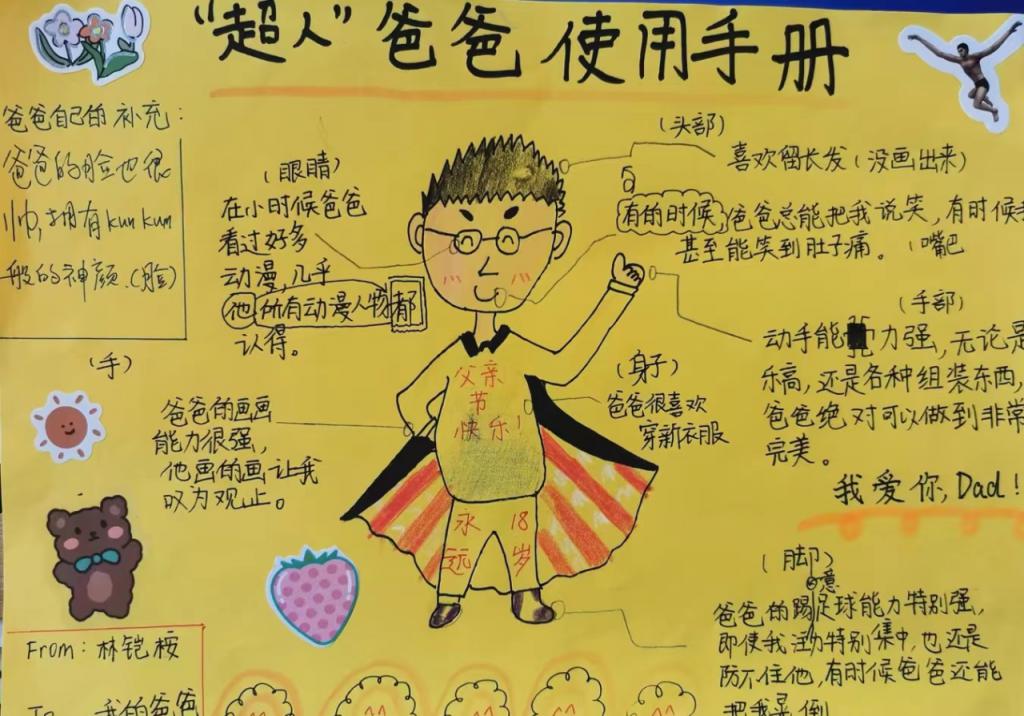 “超人”爸爸使用手册
爸爸自己的补充：
爸爸的脸也很
帅,拥有kun kun
般的神颜.(脸)
(眼睛)
在小时候爸爸
看过好多
动漫,几乎
他所有动漫人物都
认得。
(头部)
喜欢留长发(没画出来)
有的时候爸爸总能把我说笑,有时候
甚至能笑到肚子痛。(嘴巴
(手部)
动手能力强,无论是
乐高,还是各种组装东西,
爸爸绝对可以做到非常
完美。
(手)
爸爸的画画
能力很强,
他画的画让我
叹为观止。
(身子)
爸爸很喜欢
穿新衣服
父亲
节
快乐!
永 18
远 岁
我爱你,Dad!
(脚)
爸爸的踢足球能力特别强,
即使我注意力特别集中,也还是
防不住他,有时候爸爸还能
把我晃倒
From:林铠桉
To 我的爸爸